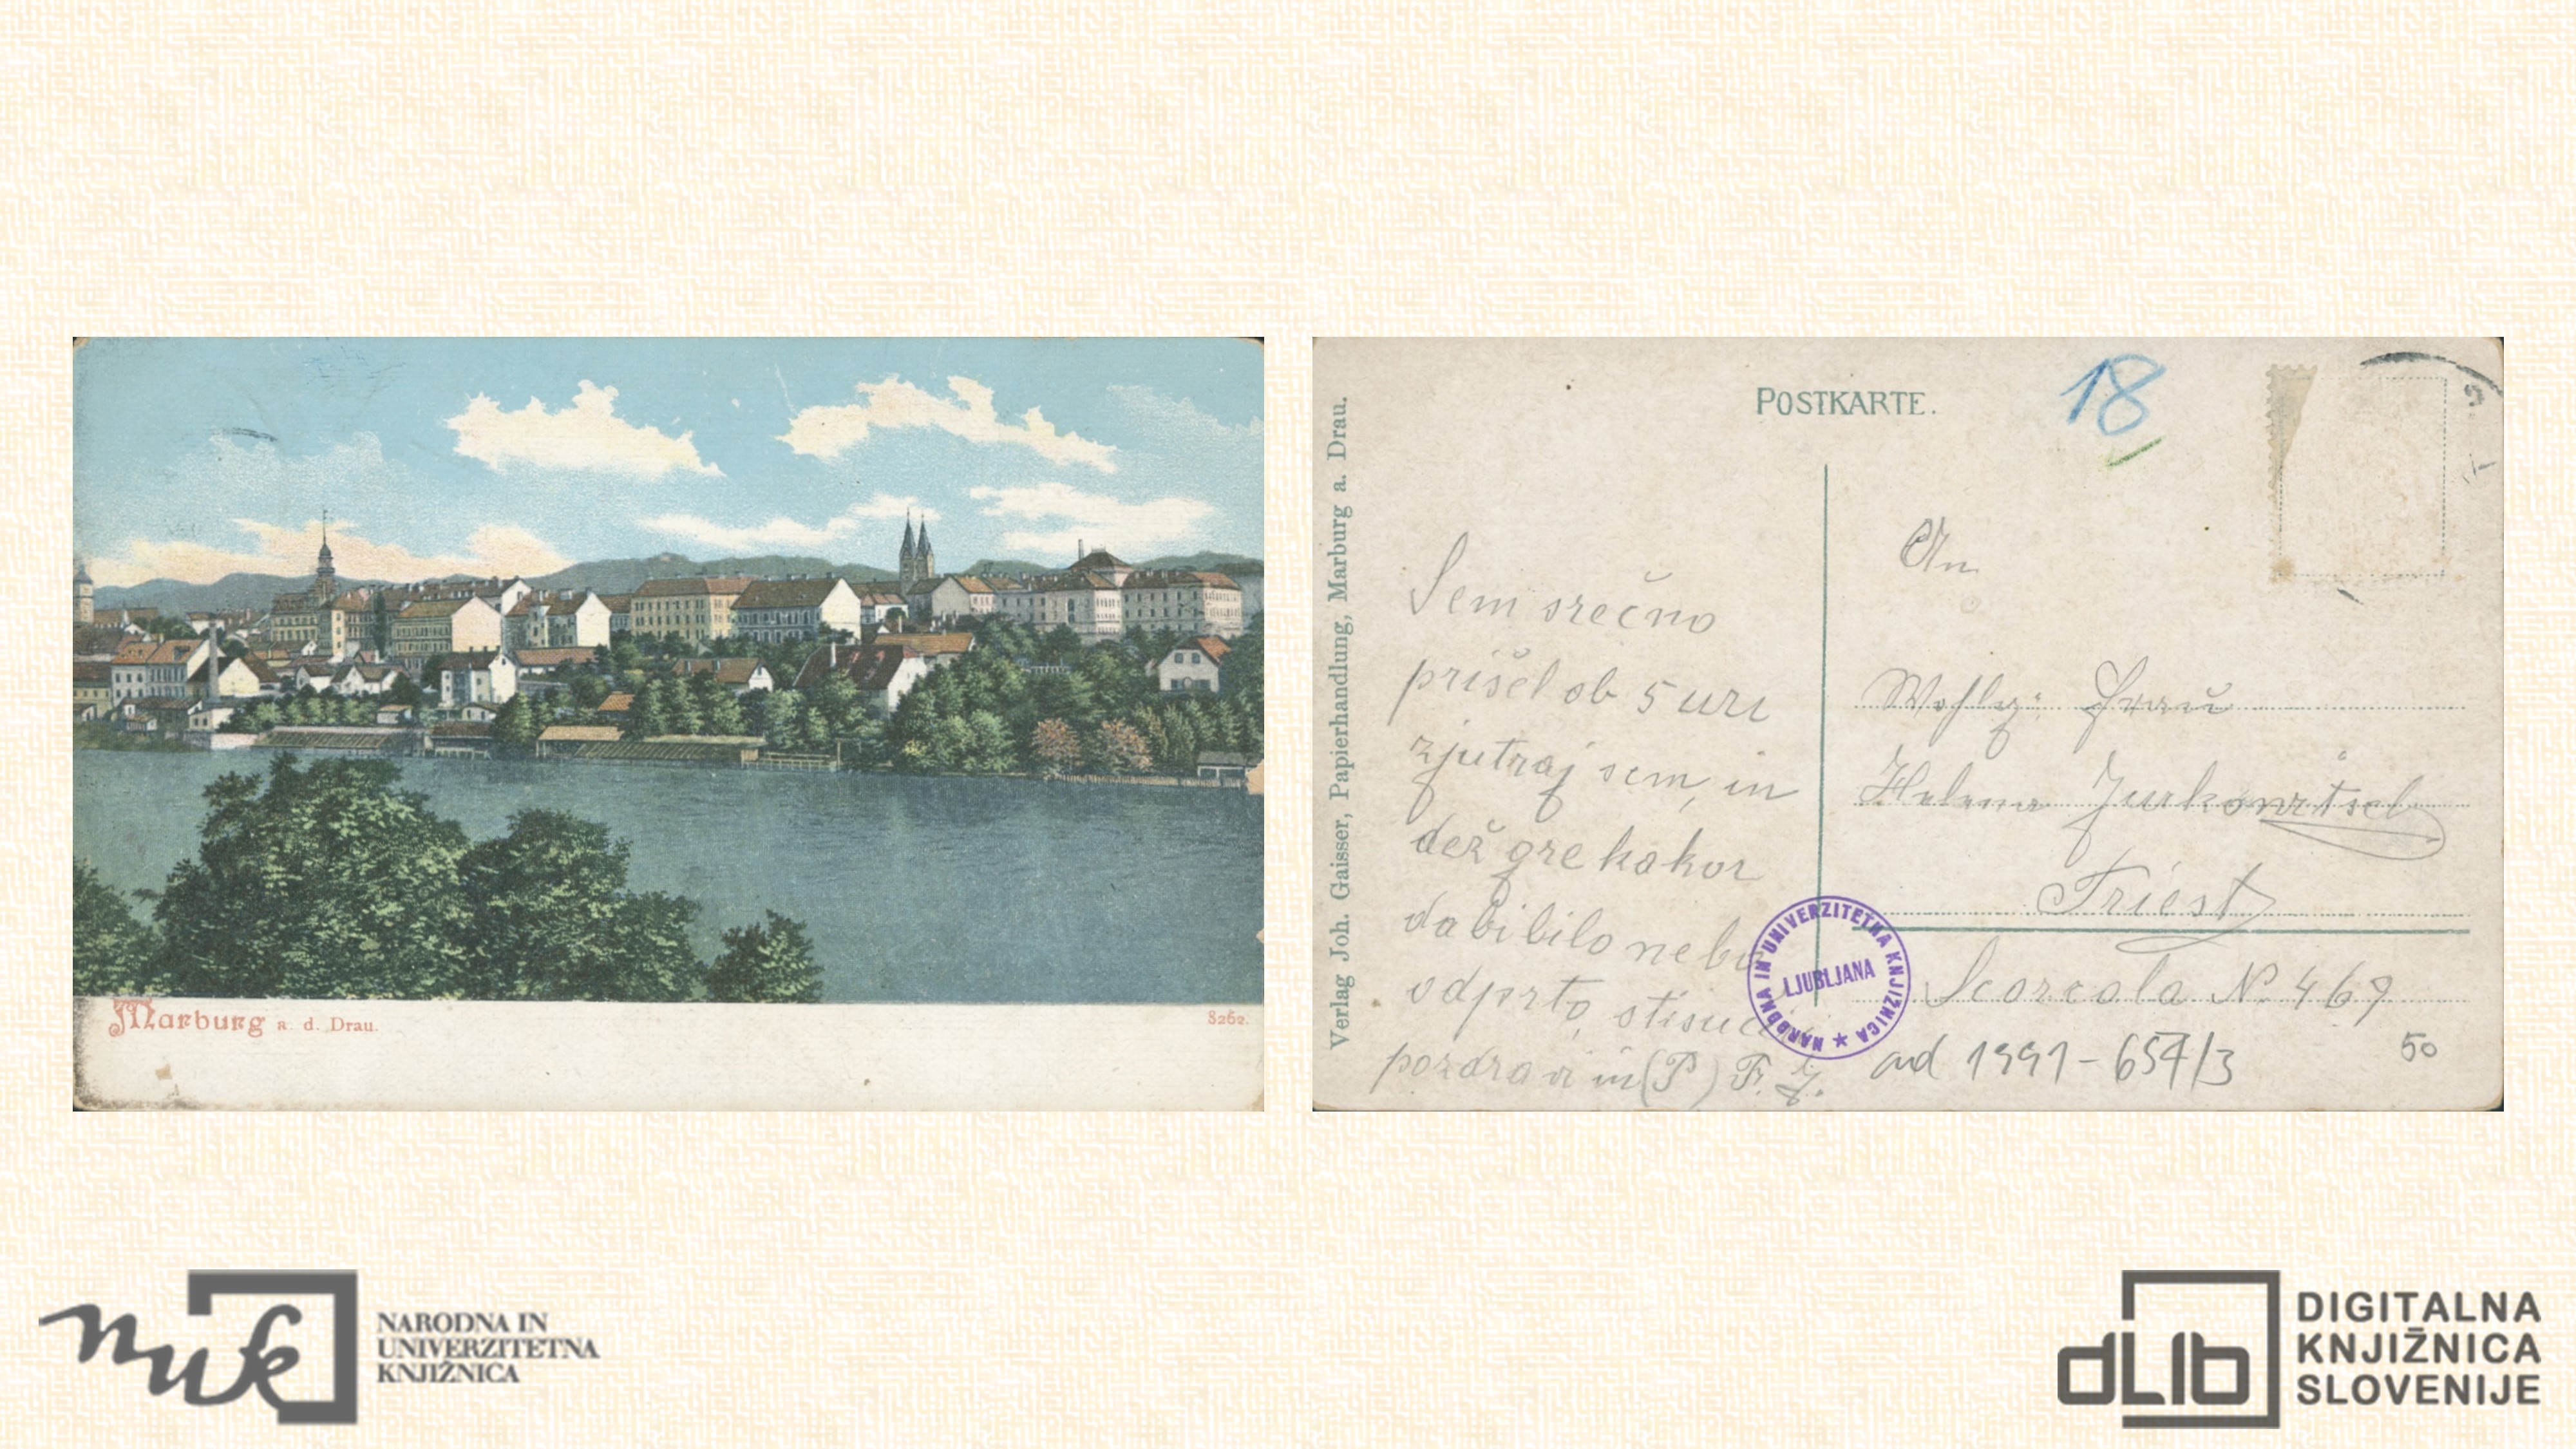 Marburg a. d. Drau.
8262.
Verlag Joh. Gaisser, Papierhandlung, Marburg a. Drau.
POSTKARTE.
18
Sem srečno
prišel ob 5 uri
zjutraj sem, in
dež gre kakor
da bi bilo nebo
odprto,
pozdravi in (P) F. J.
An
Wohlg: Frau
Helena
Triest
Scorcola No 469
ad 1991-654/3
50
NARODNA IN UNIVERZITETNA KNJIŽNICA ★
LJUBLJANA
nuk
NARODNA IN
UNIVERZITETNA
KNJIŽNICA
dLib
DIGITALNA
KNJIŽNICA
SLOVENIJE